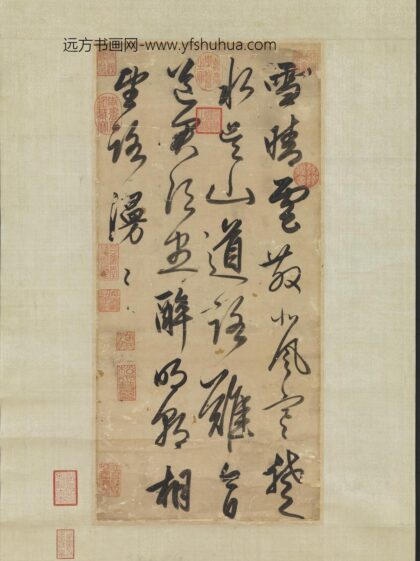 远方书画网-www.yfshuhua.com
雪晴雲散北風寒楚
水吳山道路難今日
送君須盡醉明朝相
望路漫〻